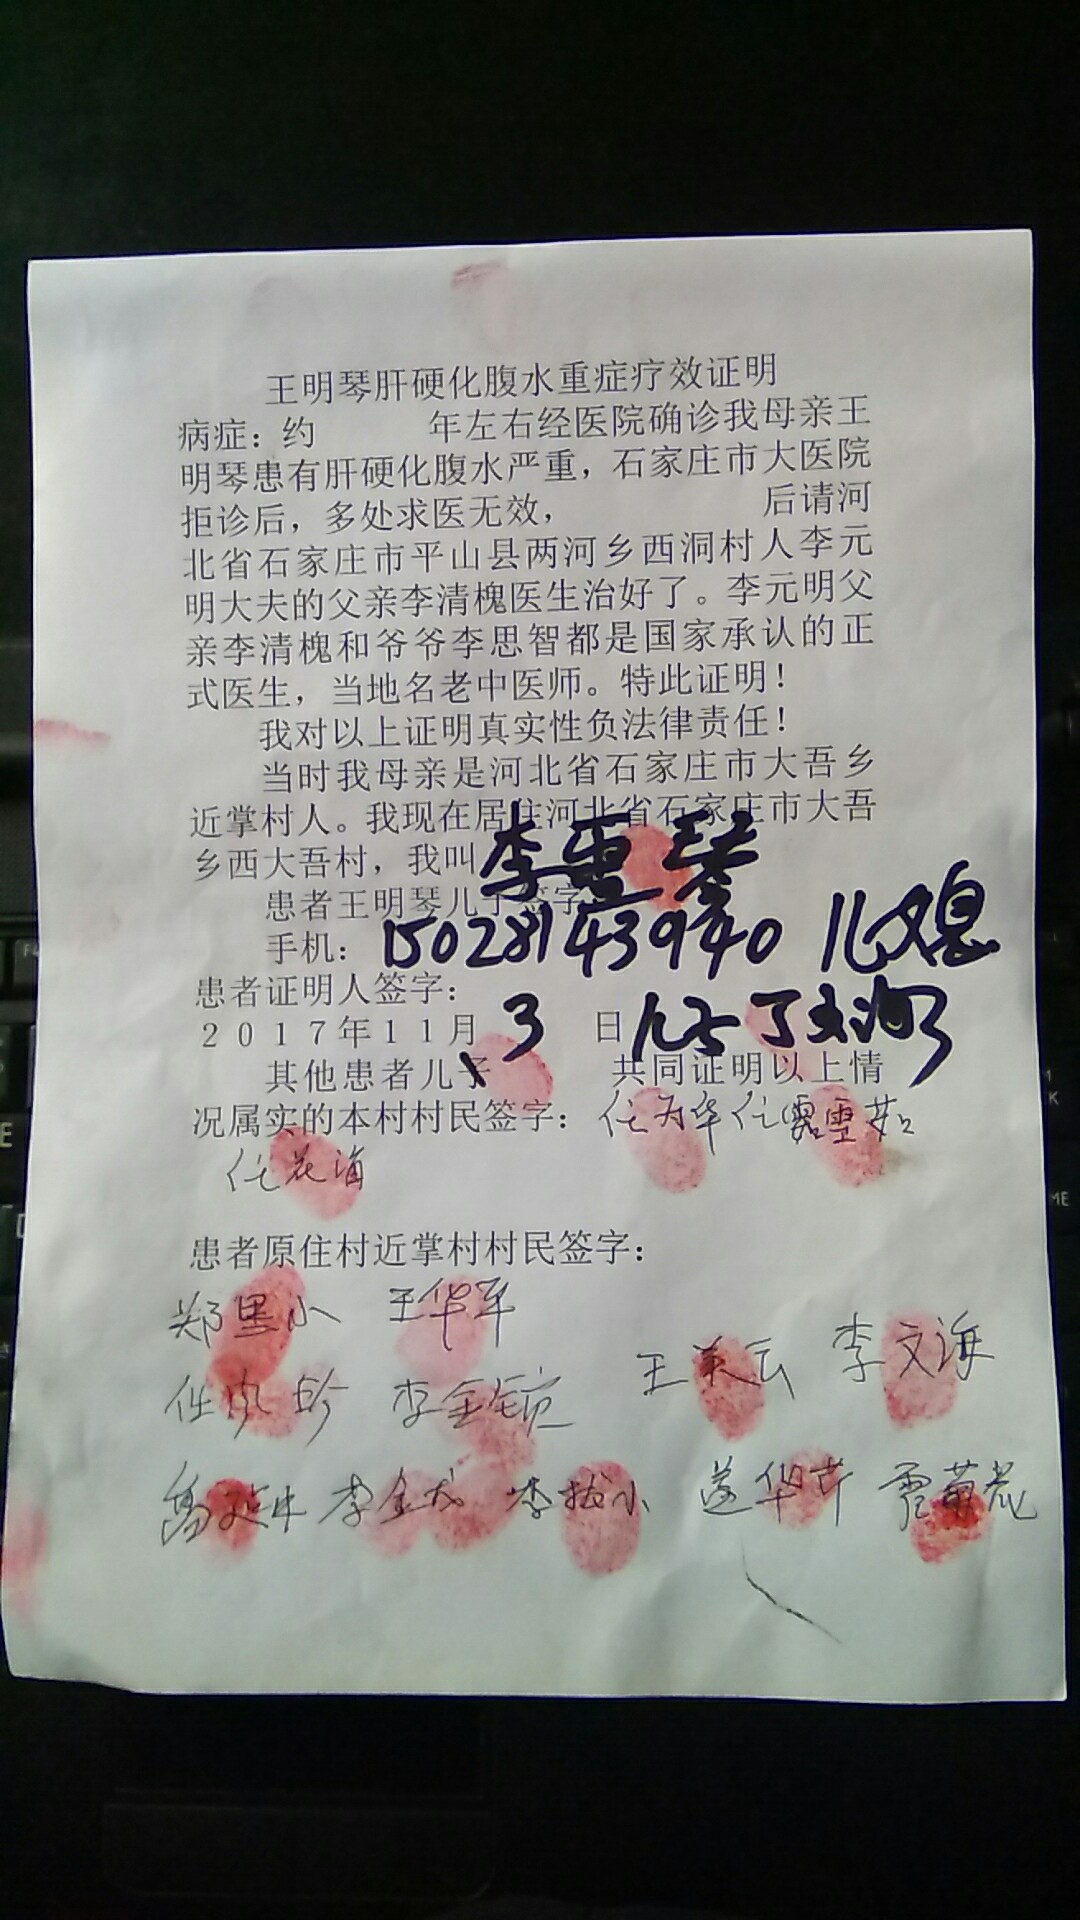 王明琴肝硬化腹水重症疗效证明
病症：约 年左右经医院确诊我母亲王
明琴患有肝硬化腹水严重，石家庄市大医院
拒诊后，多处求医无效， 后请河
北省石家庄市平山县两河乡西洞村人李元
明大夫的父亲李清槐医生治好了。李元明父
亲李清槐和爷爷李思智都是国家承认的正
式医生，当地名老中医师。特此证明！
我对以上证明真实性负法律责任！
当时我母亲是河北省石家庄市大吾乡
近掌村人。我现在居住河北省石家庄市大吾
乡西大吾村，我叫李重琴
患者王明琴儿子签字
手机：15028143940 儿媳
患者证明人签字：
2017年11月 3 日
其他患者儿子 共同证明以上情
况属实的本村村民签字：任为华 任雪茹
任花海
患者原住村近掌村村民签字：
郑里小 王华军
王美云 李文海
李金
李金 李拔小 华芹